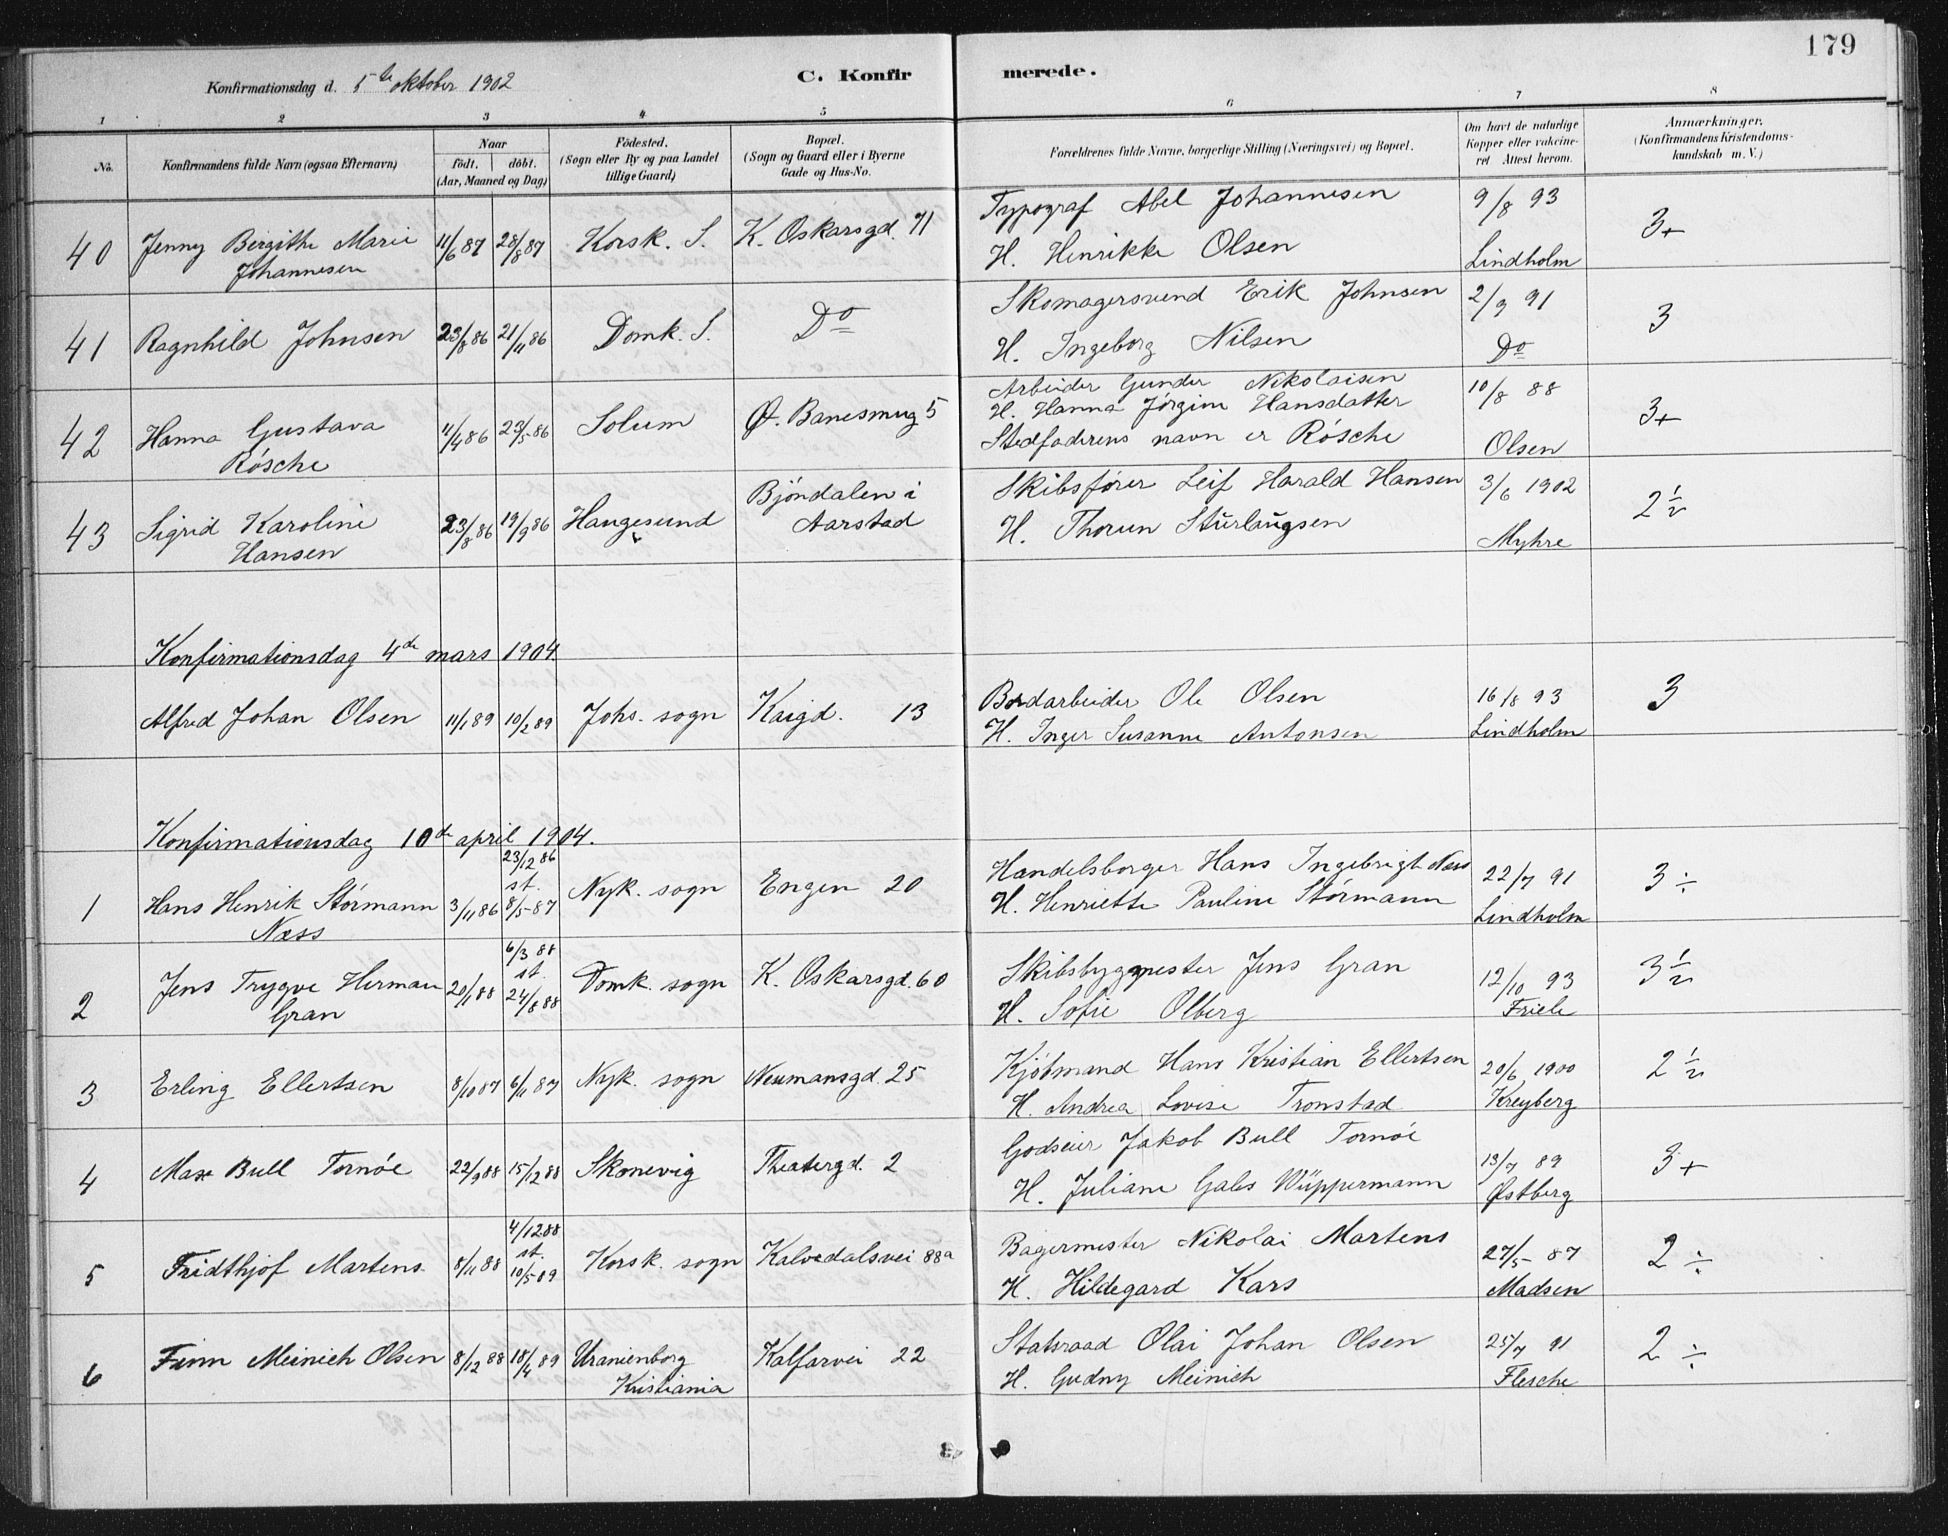 179
Konfirmationsdag d. 5te oktober 1902
C. Konfirmerede.
1 2 3 4 5 6 7 8
No.
Konfirmandens fulde Navn (ogsaa Efternavn)
Naar
födt. döbt.
(Aar, Maaned og Dag)
Födested.
(Sogn eller By og paa Landet
tillige Gaard)
Bopæl.
(Sogn og Gaard eller i Byerne
Gade og Hus-No.
Forældrenes fulde Navne, borgerlige Stilling (Næringsvei) og Bopæl.
Om havt de naturlige
Kopper eller vakcine-
ret Attest herom.
Anmærkninger.
(Konfirmandens Kristendoms-
kundskab m. V.)
40 Jenny Bergithe Marie 11/6 87 28/8 87 Korsk. S. K. Oskarsgd. 71 Typograf Abel Johannesen 9/8 93 3+
Johannesen H. Henrikke Olsen Lindholm
41 Ragnhild Johnsen 23/8 86 21/11 86 Domk. S. Do Skomagersvend Erik Johnsen 2/9 91 3
H. Ingeborg Nilsen Do
42 Hanna Gustava 11/4 86 23/5 86 Solum Ø. Banesmug 5 Arbeider Gunder Nikolaisen 10/8 88 3+
H. Hanna Jörgine Hansdatter
Rösche Stedfaderens navn er Rösche Olsen
43 Sigrid Karoline 23/8 86 19/9 86 Haugesund Bjöndalen i Skibsförer Leif Harald Hansen 3/6 1902 2 1/2
Hansen Aarstad H. Thorun Sturlaugsen Myhre
Konfirmationsdag 4de mars 1904.
Alfred Johan Olsen 11/1 89 10/2 89 Johs. sogn Kaigd. 13 Bordarbeider Ole Olsen 16/8 93 3
H. Inger Susanne Antonsen Lindholm
Konfirmationsdag 10de april 1904.
1 Hans Henrik Störmann 3/11 86 23/12 86 st. 8/5 87 Nyk. sogn Engen 20 Handelsborger Hans Ingebrigt Næss 22/7 91 3 ÷
Næss H. Henriette Pauline Störmann Lindholm
2 Jens Trygve Herman 20/1 88 6/3 88 st. 24/8 88 Domk. sogn K. Oskarsgd. 60 Skibsbygmester Jens Gran 12/10 93 3 1/2
Gran H. Sofie Olberg Friele
3 Erling Ellertsen 8/10 87 6/11 87 Nyk. sogn Neumansgd. 25 Kjöbmand Hans Kristian Ellertsen 20/6 1900 2 1/2
H. Andrea Lovise Tronstad Kreyberg
4 Max Bull Tornöe 22/9 88 15/12 88 Skonevig Theatergd. 2 Godseier Jakob Bull Tornöe 13/7 89 3+
H. Juliane Gales Wüppermann Østberg
5 Fridthjof Martens 8/11 88 4/12 88 st. 10/5 89 Korsk. sogn Kalvedalsvei 88a Bagermester Nikolai Martens 27/5 87 2 ÷
H. Hildegard Kars Madsen
6 Finn Meinich Olsen 8/12 88 18/4 89 Uranienborg Kalfarvei 22 Statsraad Olai Johan Olsen 25/7 91 2 ÷
Kristiania H. Gudny Meinich Flesche